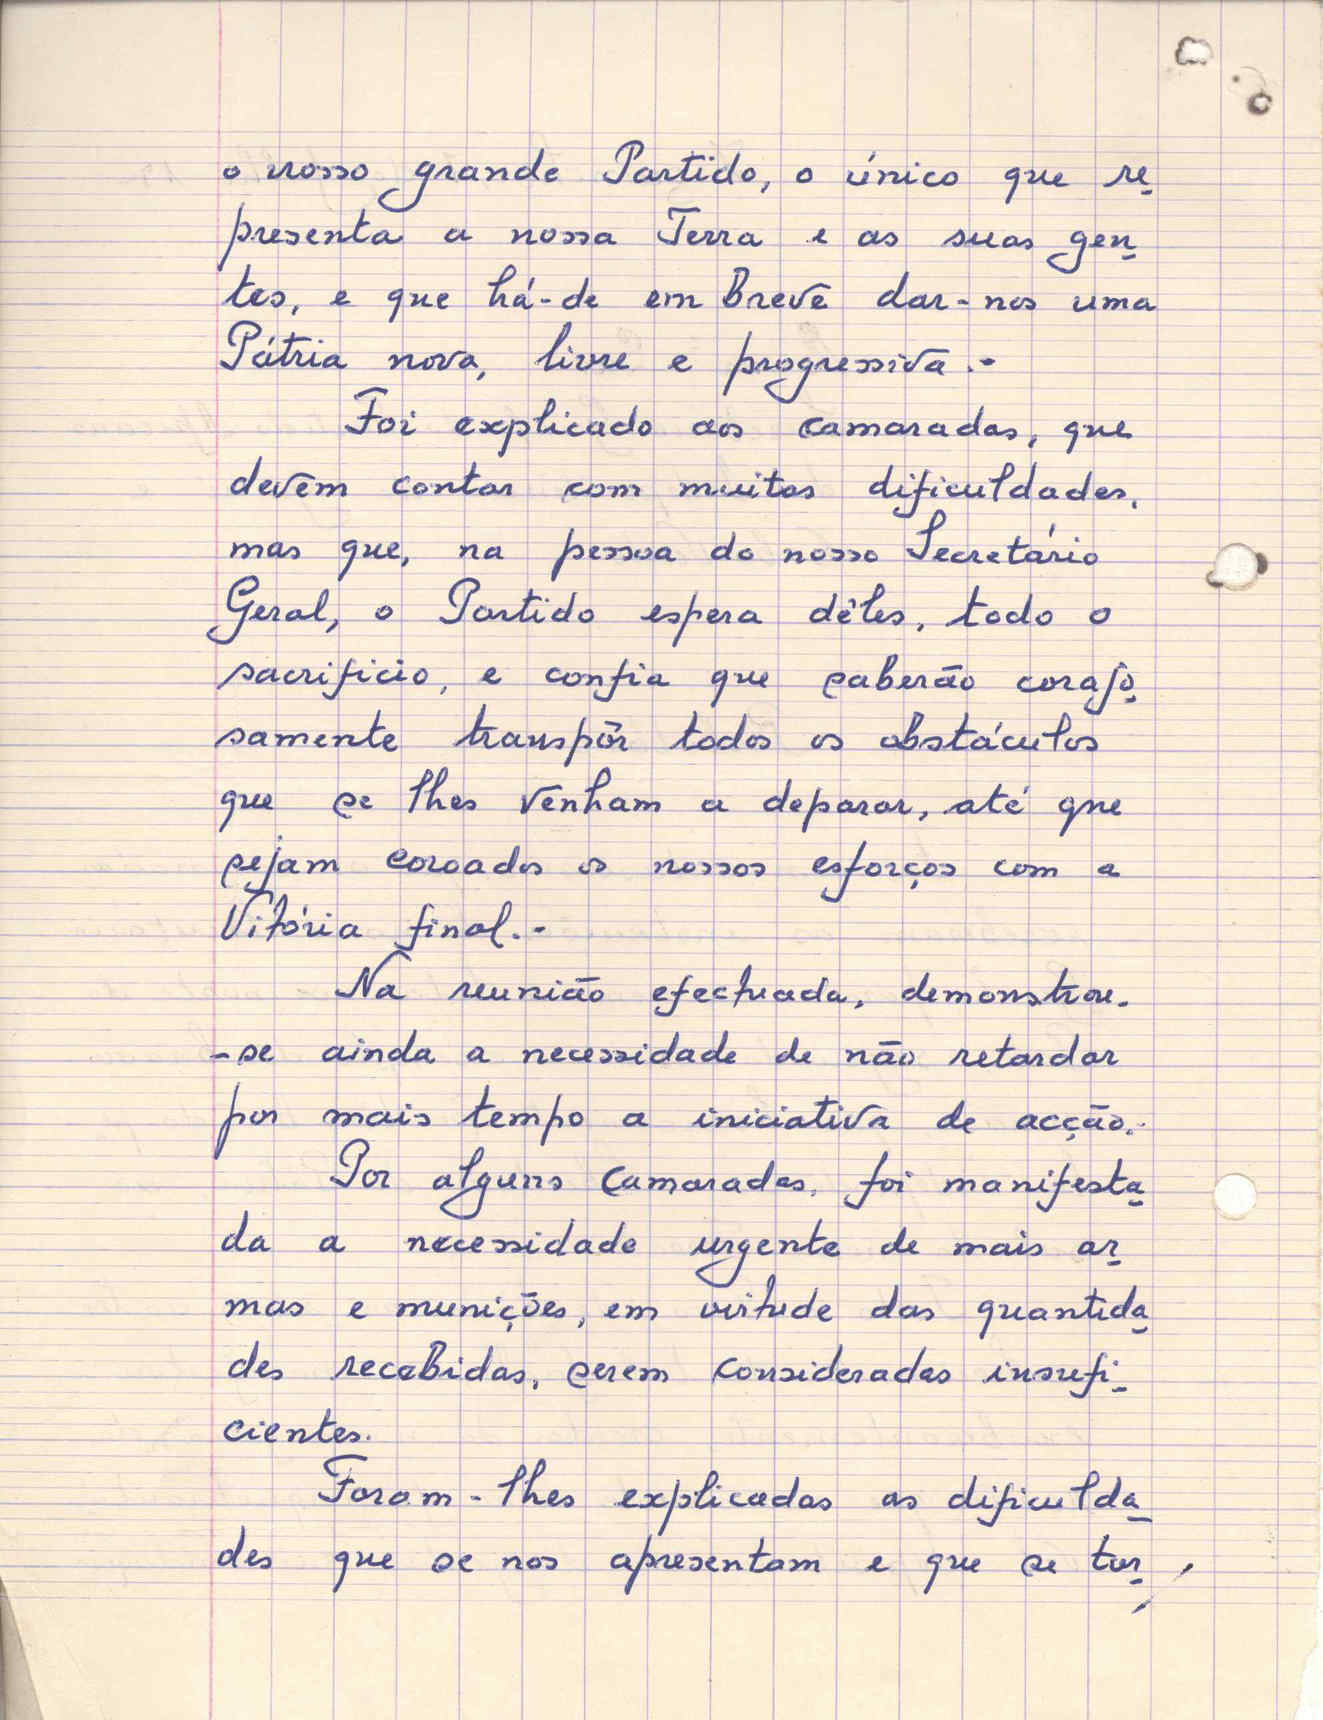 o nosso grande Partido, o único que re-
presenta a nossa Terra e as suas gen-
tes, e que há-de em breve dar-nos uma
Pátria nova, livre e progressiva.-
Foi explicado aos camaradas, que
devem contar com muitas dificuldades,
mas que, na pessoa do nosso Secretário
Geral, o Partido espera dêles, todo o
sacrificio, e confia que saberão corajo-
samente transpôr todos os obstáculos
que se lhes venham a deparar, até que
sejam coroados os nossos esforços com a
Vitória final.-
Na reunião efectuada, demonstrou-
-se ainda a necessidade de não retardar
por mais tempo a iniciativa de acção.-
Por alguns camaradas, foi manifesta-
da a necessidade urgente de mais ar-
mas e munições, em virtude das quantida-
des recebidas, serem consideradas insufi-
cientes.
Foram-lhes explicadas as dificulda-
des que se nos apresentam e que se tor-